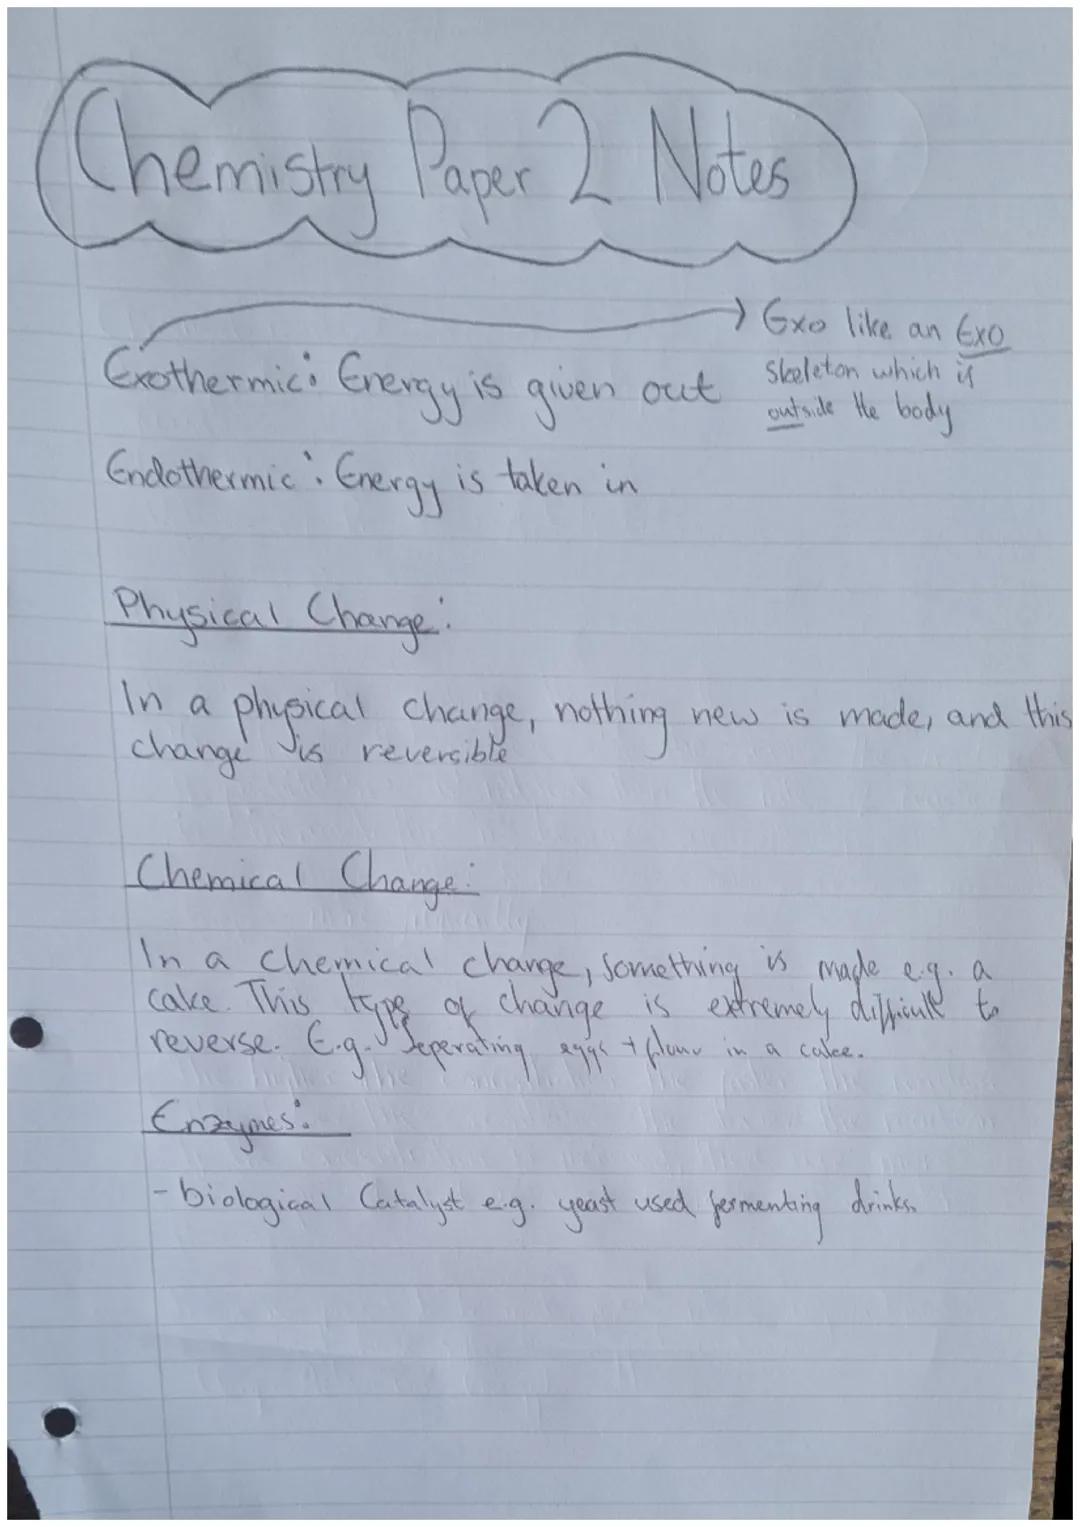 Chemistry Paper 2 Notes
Exo like an Exo
Skeleton which is
outside the body
Exothermic: Energy is given out
Endothermic: Energy is taken in
Physical Change:
In a physical change, nothing new is made, and this
change is reversible
Chemical Change:
In a chemical change, something is made e.g. a
cake. This type of change is extremely difficult to
reverse. E.g. Seperating eggs + flour in a cake.
Enzymes:
- biological Catalyst e.g. yeast used fermenting drinks.